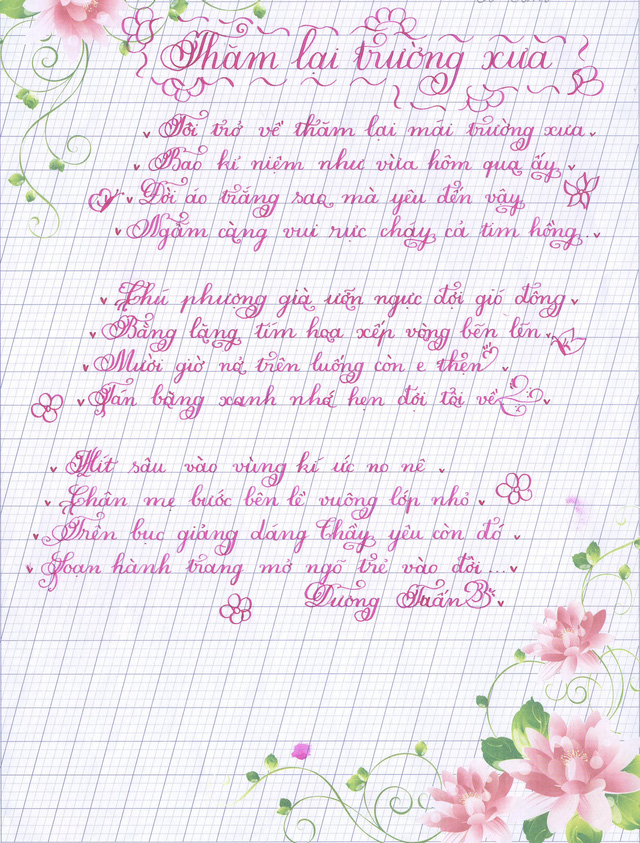 Thăm lại trường xưa
Tôi trở về thăm lại mái trường xưa
Bao kỉ niệm như vừa hôm qua ấy
Đôi áo trắng sao mà yêu đến vậy
Ngẫm càng vui rực cháy cả tim hồng
Chú phượng già ưỡn ngực đợi gió đông
Bằng lăng tím hoa xếp vòng bẽn lẽn
Mười giờ nở trên luống còn e thẹn
Tán bàng xanh nhớ hẹn đón tôi về
Hít sâu vào vùng kí ức no nê
Chân mẹ bước bên lề vuông lớp nhỏ
Trên bục giảng dáng Thầy yêu còn đó
Soạn hành trang mở ngõ trẻ vào đời...
Dương Tuấn